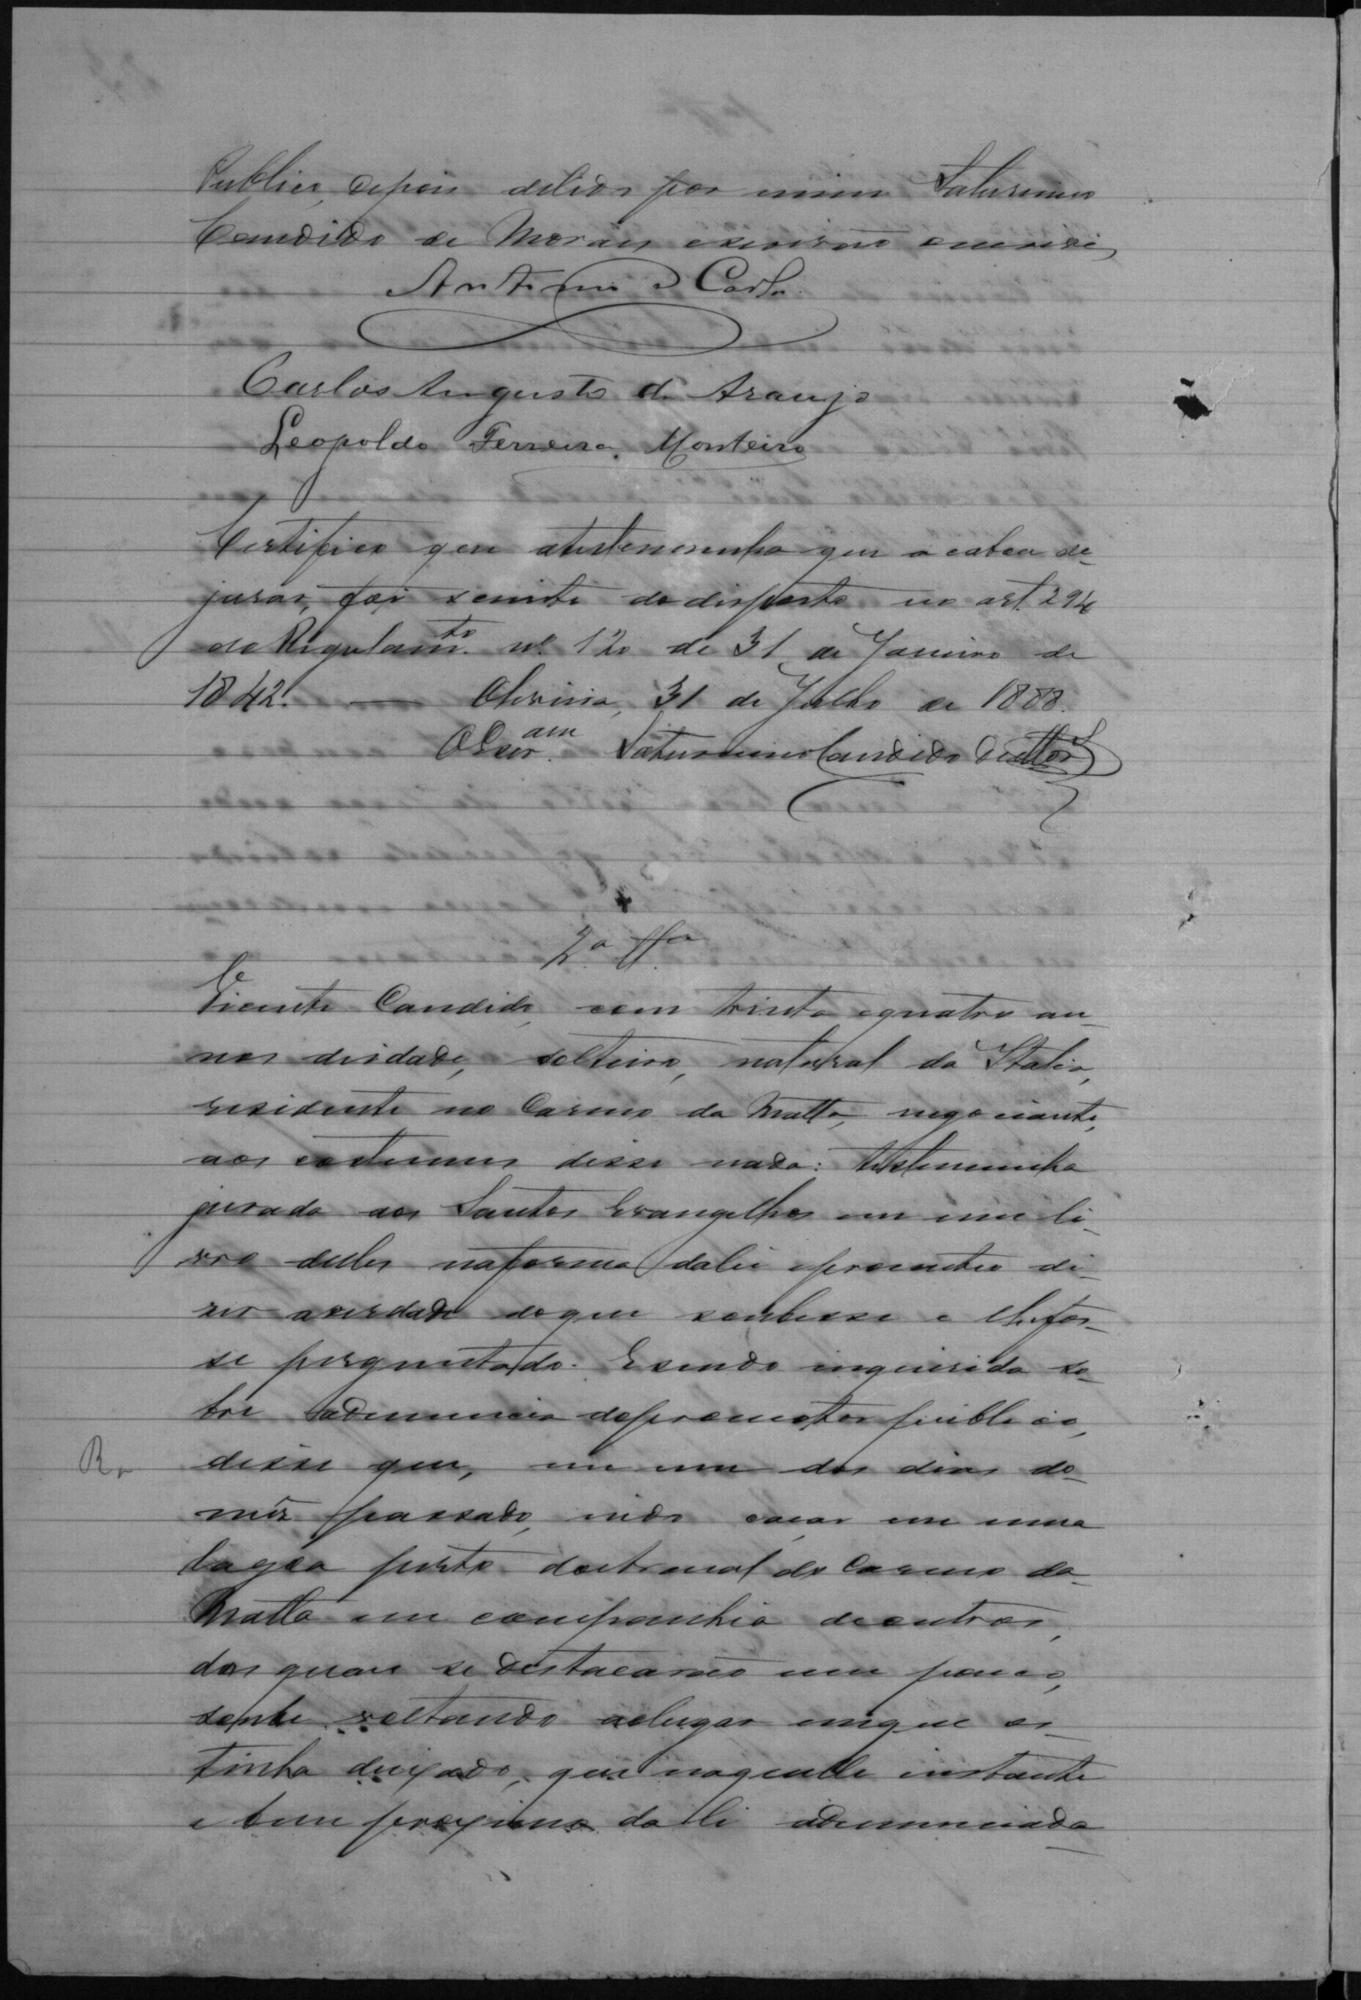 Publico, depois delido por mim Saturnino
Candido de Moraes escrivão escrevi
Antonio Carlo
Carlos Augusto de Araujo
Leopoldo Ferreira Monteiro
Certifico que atestemunha que acabou de
jurar, foi sciente do disposto no art. 294
do Regulamto. nº 120 de 31 de Janeiro de
1842. — Oliveira, 31 de Julho de 1888.
O Escram. Saturnino Candido
2a Ta
Vicente Candido com trinta equatro an-
nos deidade, solteiro, natural da Italia,
residente no Carmo da Matta, negociante,
aos costumes disse nada: testemunha
jurada aos Santos Evangelhos em um li-
vro delles naforma dalei eprometteu di-
zer averdade doque soubesse e lhefos-
se perguntado. Esendo inquirida so-
bre adenuncia dopromotor publico,
disse que, em um dos dias do
mês passado, indo caçar em uma
lagoa perto do arraial do Carmo da
Matta em companhia deoutros,
dos quaes se destacarão um pouco,
soube voltando aolugar emque os
tinha deixado, que naquelle instante
e bem proximo dali odenunciado